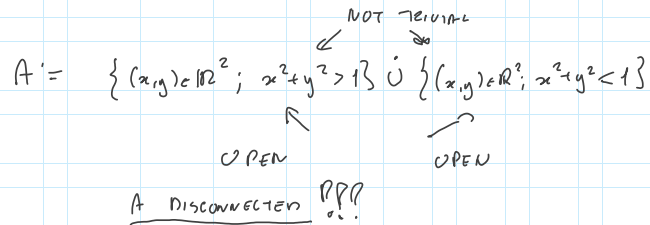 NOT TRIVIAL
A := { (x,y) ∈ ℝ² ; x²+y² > 1 } ∪̇ { (x,y) ∈ ℝ² ; x²+y² < 1 }
OPEN OPEN
A DISCONNECTED !?!?!?